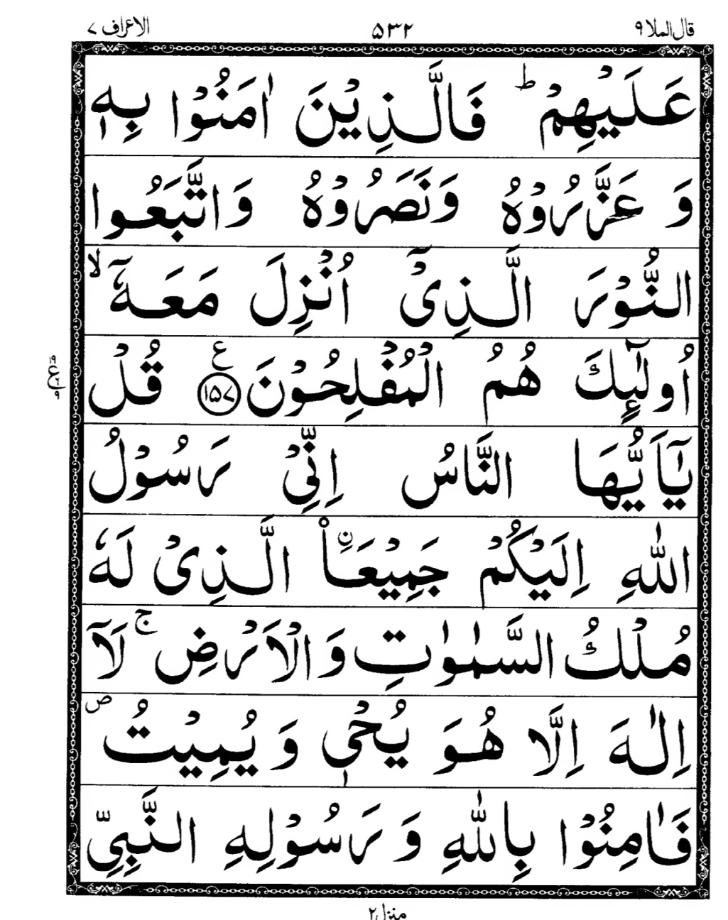 قال الملا ۹ ۵۳۲ الاعراف ۷
عَلَيْهِمْ ؕ فَالَّذِيْنَ اٰمَنُوْا بِهٖ
وَ عَزَّرُوْهُ وَنَصَرُوْهُ وَاتَّبَعُوا
النُّوْرَ الَّذِيْۤ اُنْزِلَ مَعَهٗۤ ۙ
اُولٰٓئِكَ هُمُ الْمُفْلِحُوْنَ ﴿۱۵۷﴾ ع قُلْ
يٰۤاَيُّهَا النَّاسُ اِنِّيْ رَسُوْلُ
اللهِ اِلَيْكُمْ جَمِيْعَاْ نِ۟ الَّذِيْ لَهٗ
مُلْكُ السَّمٰوٰتِ وَالْاَرْضِ ۚ لَاۤ
اِلٰهَ اِلَّا هُوَ يُحْيٖ وَ يُمِيْتُ ۪
فَاٰمِنُوْا بِاللهِ وَ رَسُوْلِهِ النَّبِيِّ
منزل ۲